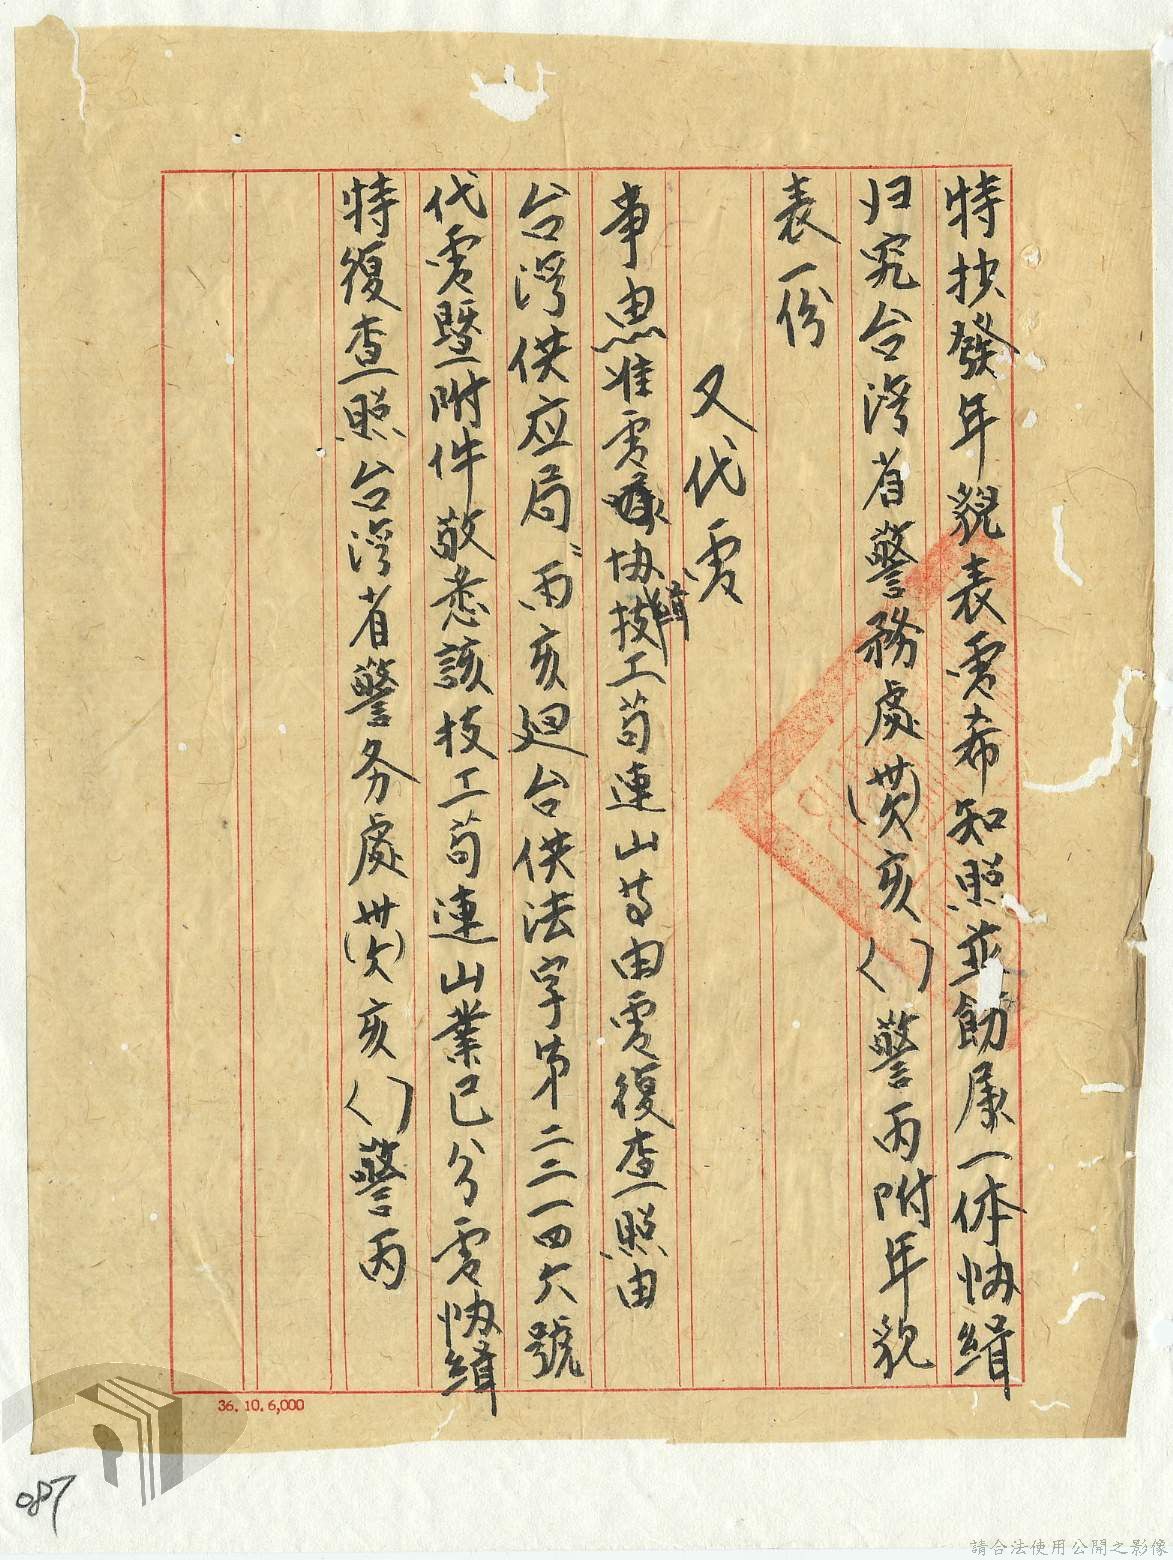 特抄發年貌表電希知照並飭屬一体协緝
归究台湾省警務處(卅六)亥()警丙附年貌
表一份
又代電
事由准電協緝技工苟連山等由電復查照由
台湾供应局丙亥迴台供法字第二二一四六號
代電暨附件敬悉該技工苟連山業已分電协緝
特復查照台湾省警务處(卅六)亥()警丙
36.10.6,000
087
請合法使用公開之影像